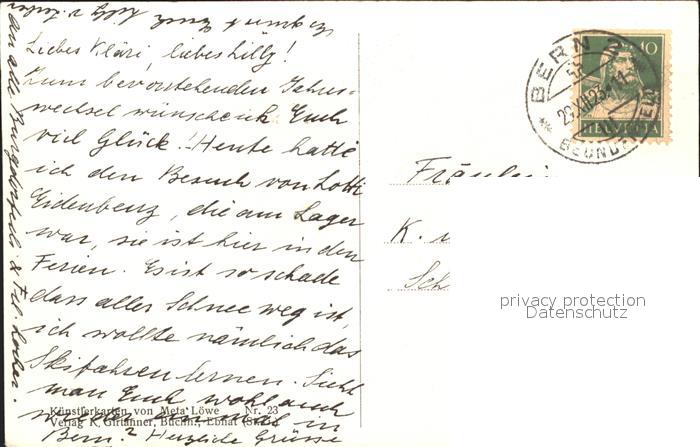 Liebes Kläri, liebes Lilly!
Zum bevorstehenden Jahres-
wechsel wünsche ich Euch
viel Glück! Heute hatte
ich den Besuch von Lotti
Eidenbenz, die am Lager
war, sie ist hier in den
Ferien. Es ist so schade
dass aller Schnee weg ist,
ich wollte nämlich das
Skifahren lernen. Sieht
man Euch wohl auch
wieder einmal in
Bern? Herzliche Grüsse
An alle, & Frl. Locher.
Künstlerkarten von Meta Löwe Nr. 23
Verlag K. Girtanner, Buchh., Ebnat
Fräulei
K. u
Sch
BERN 2
29.XII.23
BEUNDENFELD
10
HELVETIA
privacy protection
Datenschutz